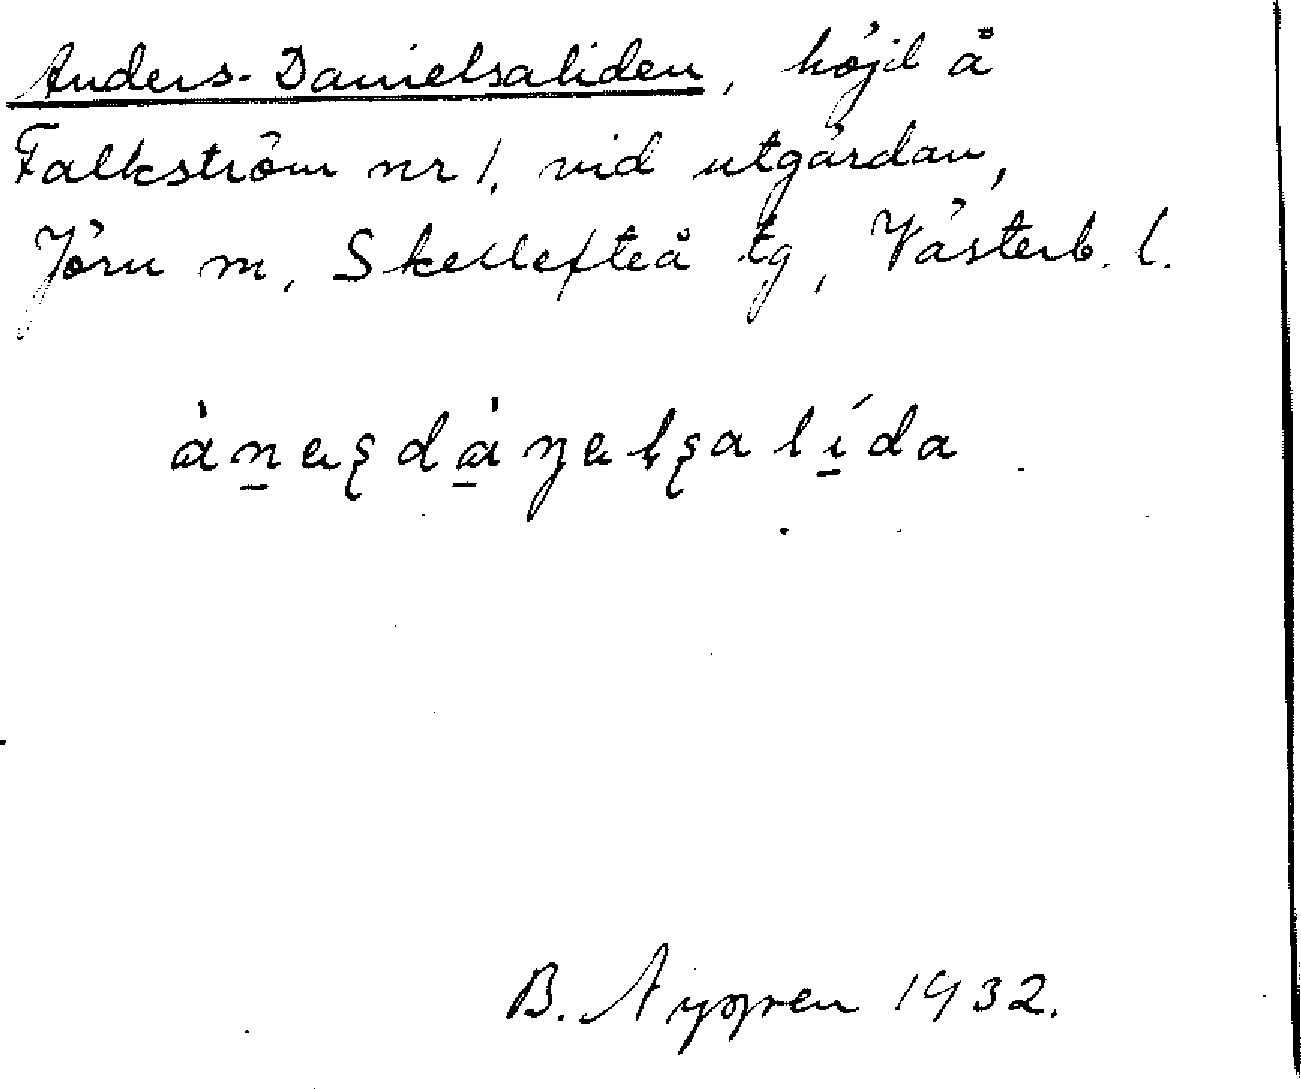 Anders-Danielsaliden, höjd å
Falkström nr 1. vid utgårdan,
Jörn m, Skellefteå tg, Västerb. l.
B. 1932.